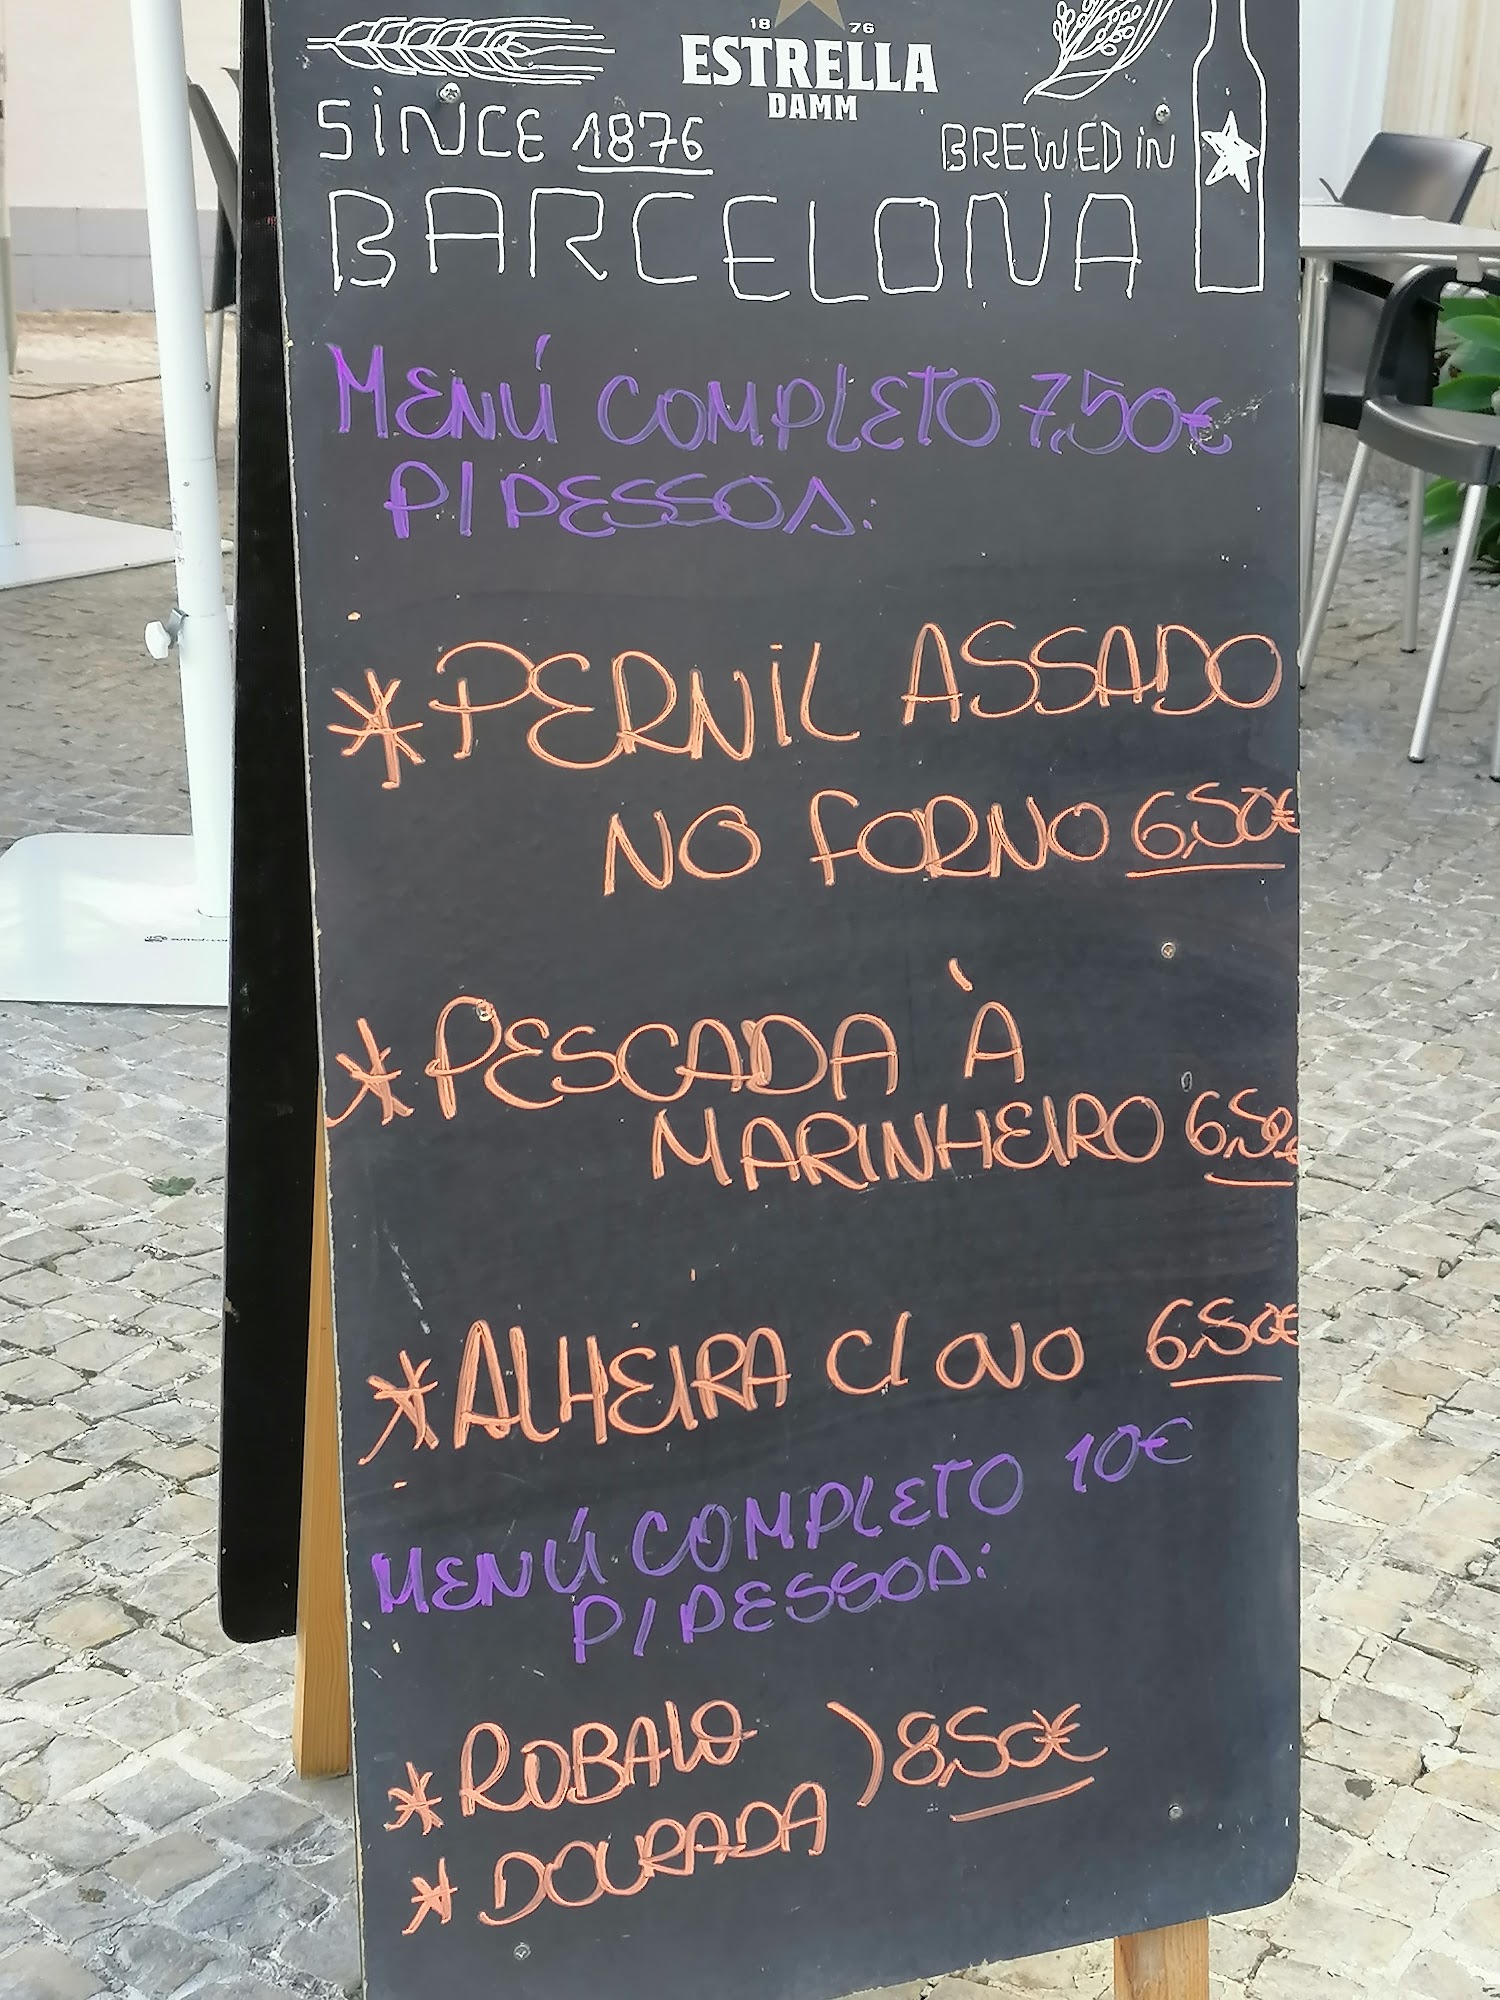 18 76
ESTRELLA
DAMM
SINCE 1876
BREWED IN
BARCELONA
MENÚ COMPLETO 7,50€
P/ PESSOA:
*PERNIL ASSADO
NO FORNO 6,50€
*PESCADA À
MARINHEIRO 6,50€
*ALHEIRA C/ OVO 6,50€
MENÚ COMPLETO 10€
P/ PESSOA:
*ROBALO ) 8,50€
*DOURADA